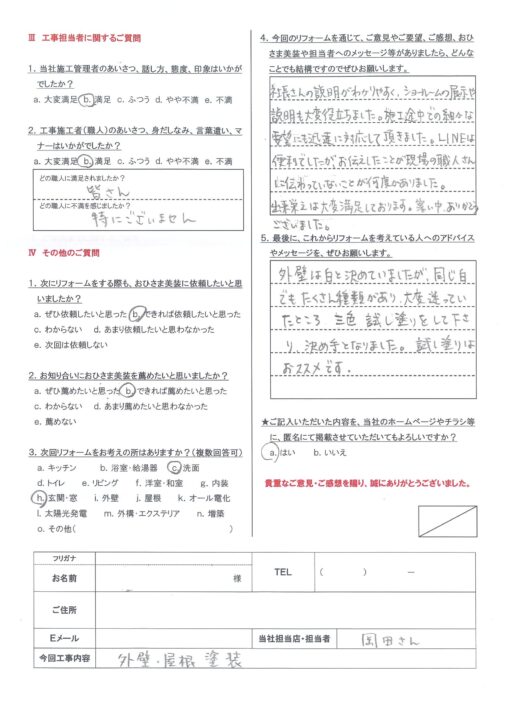 Ⅲ 工事担当者に関するご質問
1. 当社施工管理者のあいさつ、話し方、態度、印象はいかが
でしたか?
a. 大変満足 b. 満足 c. ふつう d. やや不満 e. 不満
2. 工事施工者(職人)のあいさつ、身だしなみ、言葉遣い、マ
ナーはいかがでしたか?
a. 大変満足 b. 満足 c. ふつう d. やや不満 e. 不満
どの職人に満足されましたか?
皆さん
どの職人に不満を感じましたか?
特にございません
Ⅳ その他のご質問
1. 次にリフォームをする際も、おひさま美装に依頼したいと思
いましたか?
a. ぜひ依頼したいと思った b. できれば依頼したいと思った
c. わからない d. あまり依頼したいと思わなかった
e. 次回は依頼しない
2. お知り合いにおひさま美装を薦めたいと思いましたか?
a. ぜひ薦めたいと思った b. できれば薦めたいと思った
c. わからない d. あまり薦めたいと思わなかった
e. 薦めない
3. 次回リフォームをお考えの所はありますか?(複数回答可)
a. キッチン b. 浴室・給湯器 c. 洗面
d. トイレ e. リビング f. 洋室・和室 g. 内装
h. 玄関・窓 i. 外壁 j. 屋根 k. オール電化
l. 太陽光発電 m. 外構・エクステリア n. 増築
o. その他( )
4. 今回のリフォームを通じて、ご意見やご要望、ご感想、おひ
さま美装や担当者へのメッセージ等がありましたら、どんな
ことでも結構ですのでぜひお願いします。
社長さんの説明がわかりやすく、ショールームの展示や
説明も大変役立ちました。施工途中での細々な
要望にも迅速に対応して頂きました。LINEは
便利でしたがお伝えしたことが現場の職人さん
に伝わっていないことが何度かありました。
出来栄えは大変満足しております。寒い中、ありがとう
ございました。
5. 最後に、これからリフォームを考えている人へのアドバイス
やメッセージを、ぜひお願いします。
外壁は白と決めていましたが、同じ白
でもたくさん種類があり、大変迷ってい
たところ 三色 試し塗りをして下さ
り、決め手となりました。試し塗りは
おススメです。
★ご記入いただいた内容を、当社のホームページやチラシ等
に、匿名にて掲載させていただいてもよろしいですか?
a. はい b. いいえ
貴重なご意見・ご感想を賜り、誠にありがとうございました。
フリガナ
お名前 様 TEL ( ) ー
ご住所
Eメール 当社担当店・担当者 岡田さん
今回工事内容 外壁・屋根 塗装